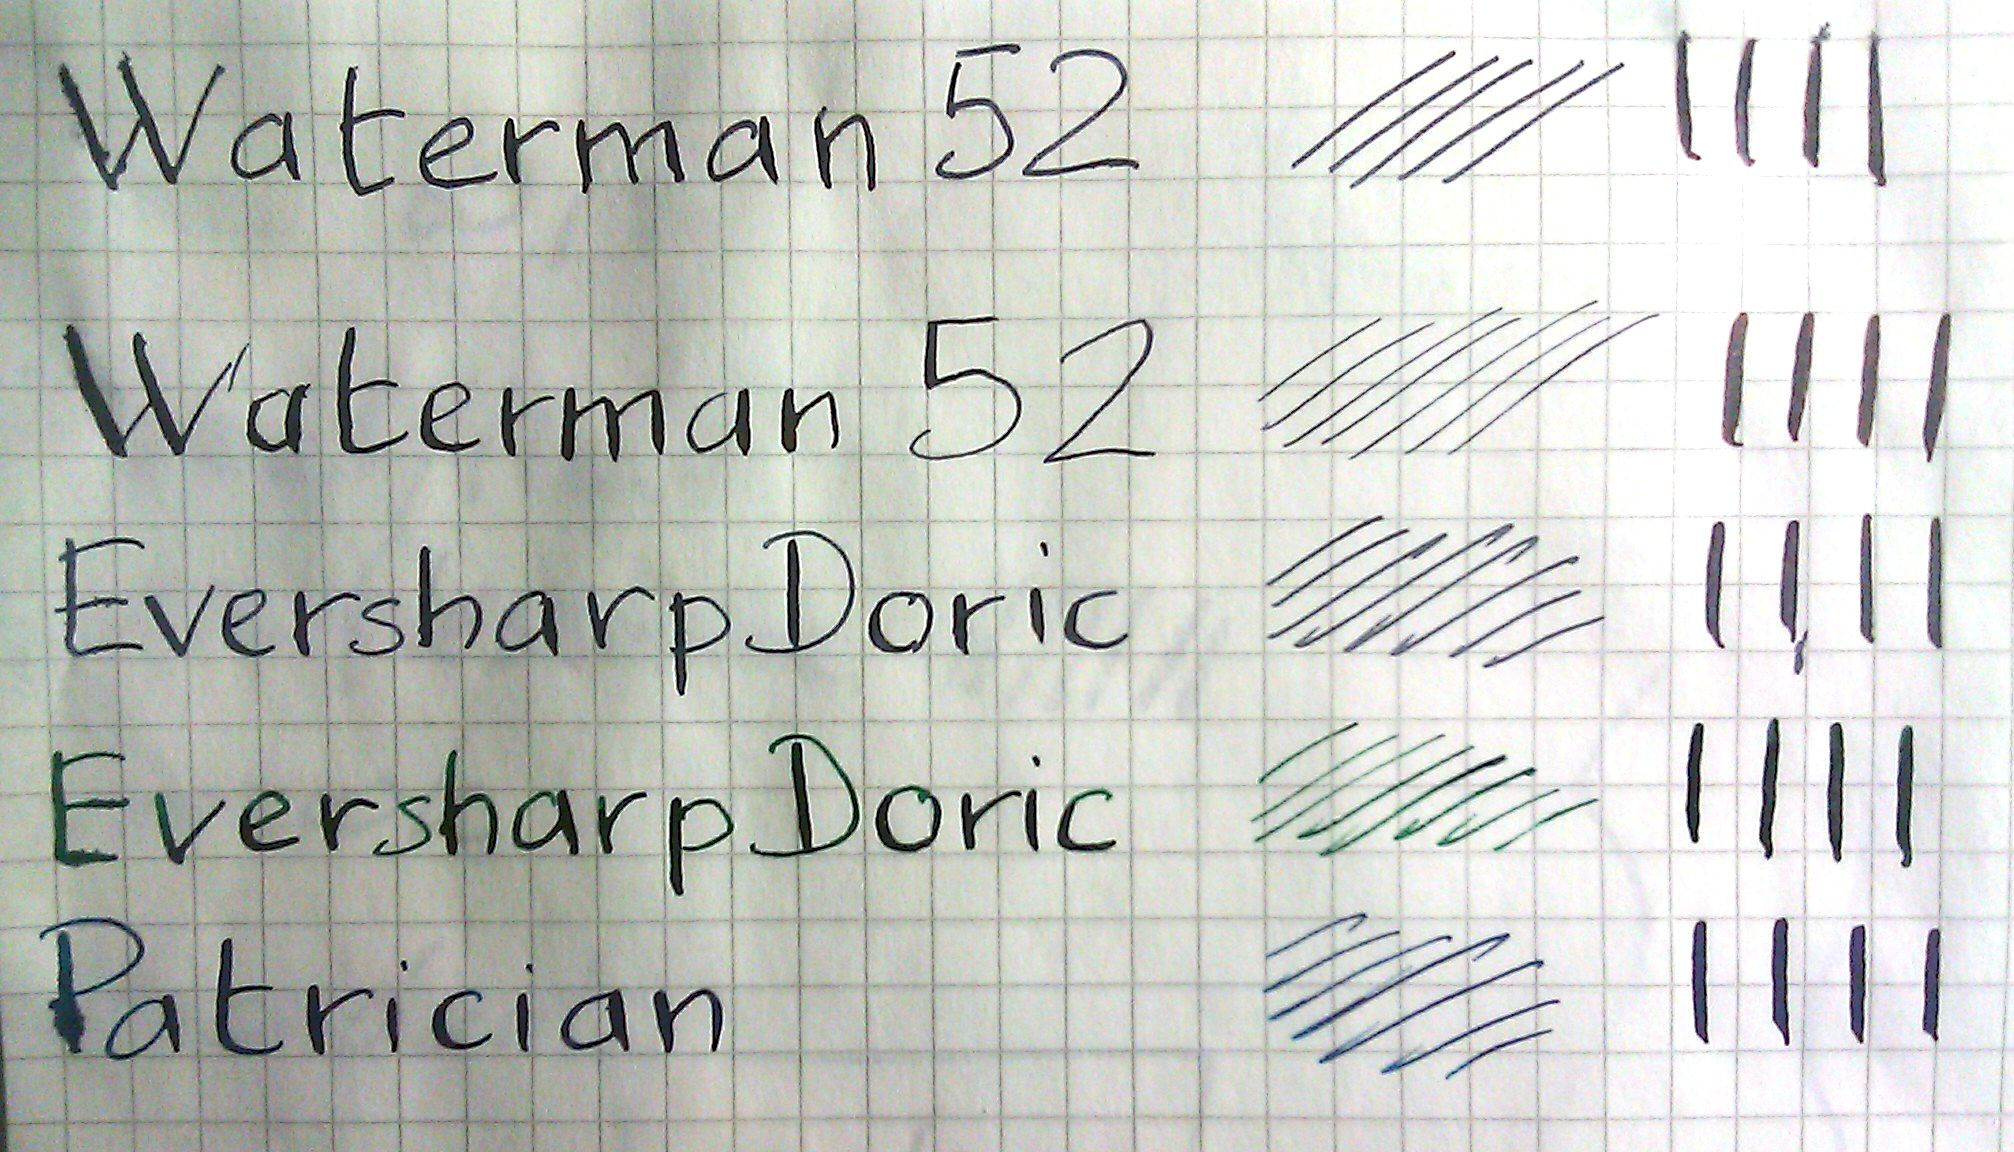 Waterman 52
Waterman 52
Eversharp Doric
Eversharp Doric
Patrician